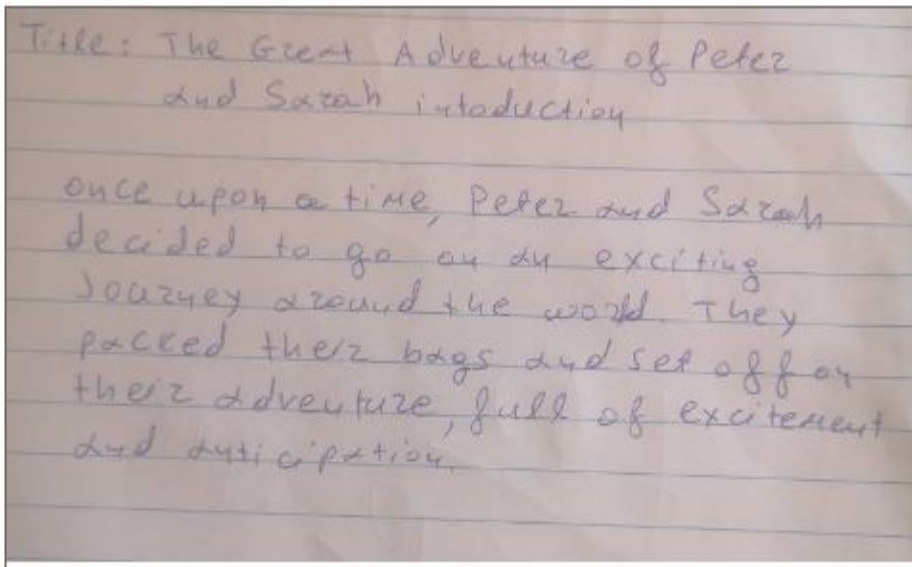 Title: The Great Adventure of Peter
and Sarah intaduction
once upon a time, Peter and Sarah
decided to go on an exciting
Journey around the world. They
packed their bags and set off on
their adventure, full of excitement
and anticipation.